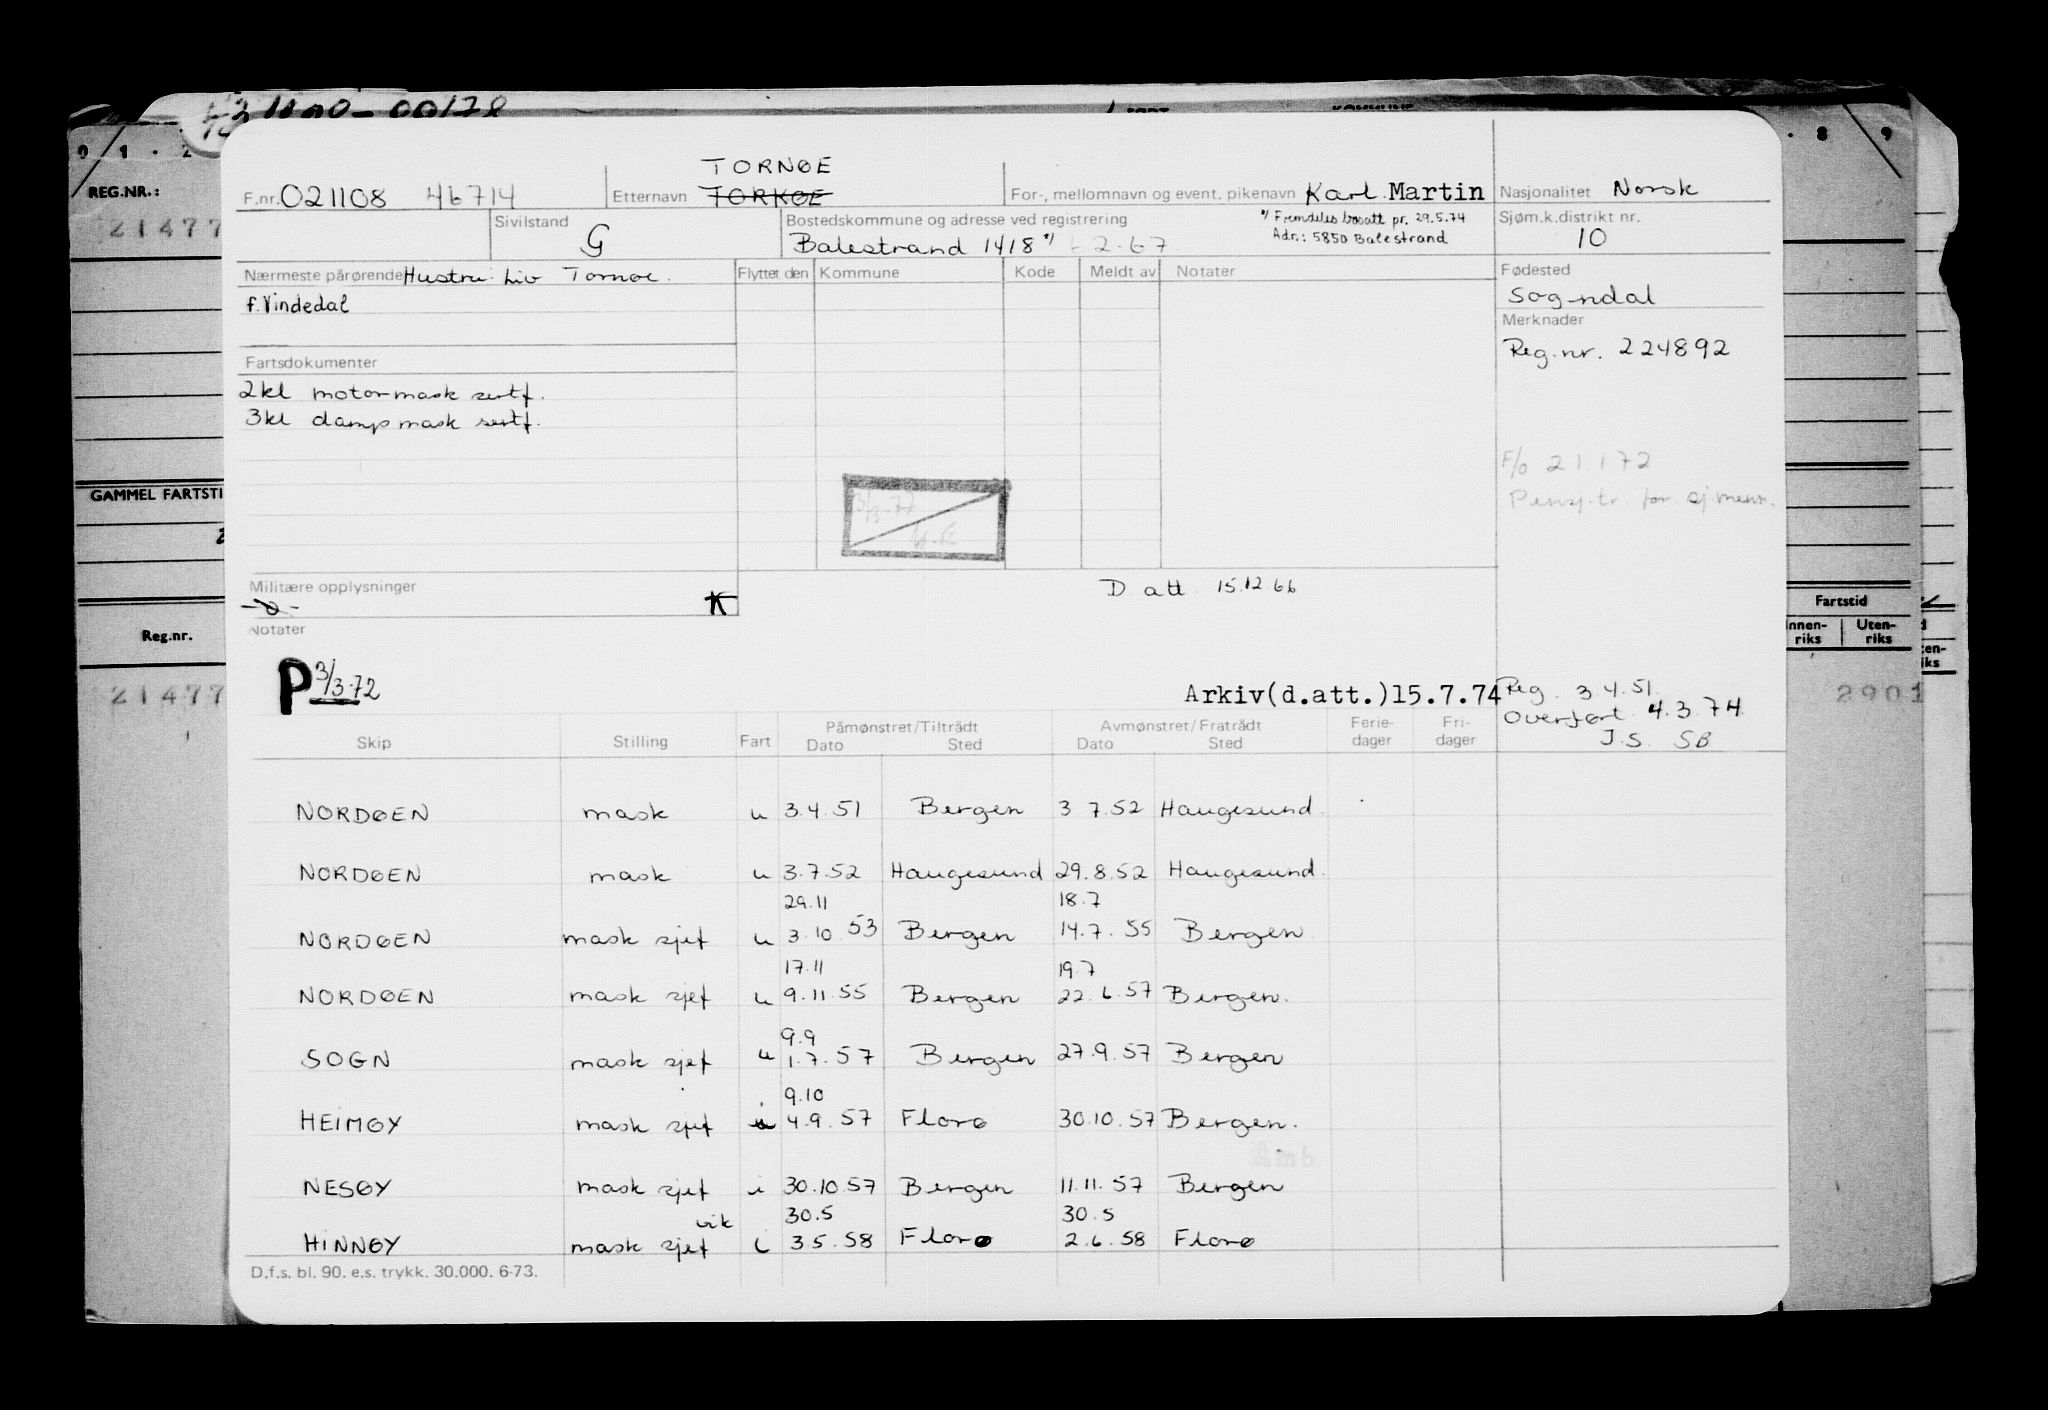 REG.NR.:
21477
GAMMEL FARTSTI
Reg.nr.
21477
8 9
Fartstid
Innen-
riks
Uten-
riks
2901
TORNØE
F.nr. 021108 46714 Etternavn TORKØE For-, mellomnavn og event. pikenavn Karl Martin Nasjonalitet Norsk
Sivilstand G
Bostedskommune og adresse ved registrering
Balestrand 1418 *)
*) Fremdeles bosatt pr. 29.5.74
Adr.: 5850 Balestrand
Sjøm.k.distrikt nr.
10
Nærmeste pårørende Hustru: Liv Tornøe.
f. Vindedal
Flyttet den Kommune Kode Meldt av Notater
Fødested
Sogndal
Merknader
Reg.nr. 224892
Fartsdokumenter
2kl motormask sertf.
3kl dampmask sertf.
F/o 21.1 72
Militære opplysninger
-0-
K
D att. 15.12.66
Notater
P 3/3-72
Arkiv(d.att.)15.7.74
Reg. 3.4.51.
Overført 4.3.74
J.S. SB
Skip Stilling Fart Påmønstret/Tiltrådt Dato Sted Avmønstret/Fratrådt Dato Sted Ferie-dager Fri-dager
NORDØEN mask u 3.4.51 Bergen 3 7.52 Haugesund.
NORDØEN mask u 3.7.52 Haugesund 29.8.52 Haugesund.
29.11 18.7
NORDØEN mask sjef u 3.10.53 Bergen 14.7.55 Bergen
17.11 19.7
NORDØEN mask sjef u 9.11.55 Bergen 22.6.57 Bergen.
9.9
SOGN mask sjef u 1.7.57 Bergen 27.9.57 Bergen
9.10
HEIMØY mask sjef i 4.9.57 Florø 30.10.57 Bergen.
NESØY mask sjef i 30.10.57 Bergen 11.11.57 Bergen
vik 30.5 30.5
HINNØY mask sjef i 3.5.58 Florø 2.6.58 Florø
D.f.s. bl. 90. e.s. trykk. 30.000. 6-73.